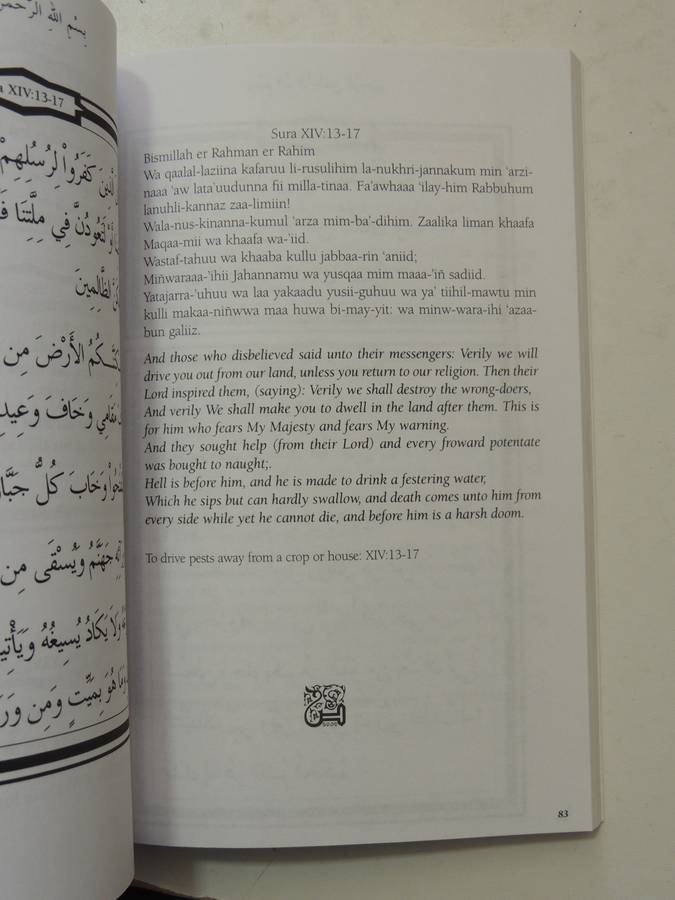 بِسْمِ اللهِ الرَّحْمٰنِ
XIV:13-17
كَفَرُوا۟ لِرُسُلِهِمْ
لَتَعُودُنَّ فِي مِلَّتِنَا
الظَّالِمِينَ
الْأَرْضَ مِن
وَخَافَ وَعِيدِ
وَخَابَ كُلُّ
جَهَنَّمُ وَيُسْقَى مِن
وَلَا يَكَادُ يُسِيغُهُ
هُوَ بِمَيِّتٍ وَمِن
Sura XIV:13-17
Bismillah er Rahman er Rahim
Wa qaalal-laziina kafaruu li-rusulihim la-nukhri-jannakum min ‘arzi-
naaa ‘aw lata’uudunna fii milla-tinaa. Fa’awhaaa ‘ilay-him Rabbuhum
lanuhli-kannaz zaa-limiin!
Wala-nus-kinanna-kumul ‘arza mim-ba’-dihim. Zaalika liman khaafa
Maqaa-mii wa khaafa wa-’iid.
Wastaf-tahuu wa khaaba kullu jabbaa-rin ‘aniid;
Miñwaraaa-’ihii Jahannamu wa yusqaa mim maaa-’iñ sadiid.
Yatajarra-’uhuu wa laa yakaadu yusii-guhuu wa ya’ tiihil-mawtu min
kulli makaa-niñwwa maa huwa bi-may-yit: wa minw-wara-ihi ‘azaa-
bun galiiz.
And those who disbelieved said unto their messengers: Verily we will
drive you out from our land, unless you return to our religion. Then their
Lord inspired them, (saying): Verily we shall destroy the wrong-doers,
And verily We shall make you to dwell in the land after them. This is
for him who fears My Majesty and fears My warning.
And they sought help (from their Lord) and every froward potentate
was bought to naught;.
Hell is before him, and he is made to drink a festering water,
Which he sips but can hardly swallow, and death comes unto him from
every side while yet he cannot die, and before him is a harsh doom.
To drive pests away from a crop or house: XIV:13-17
83